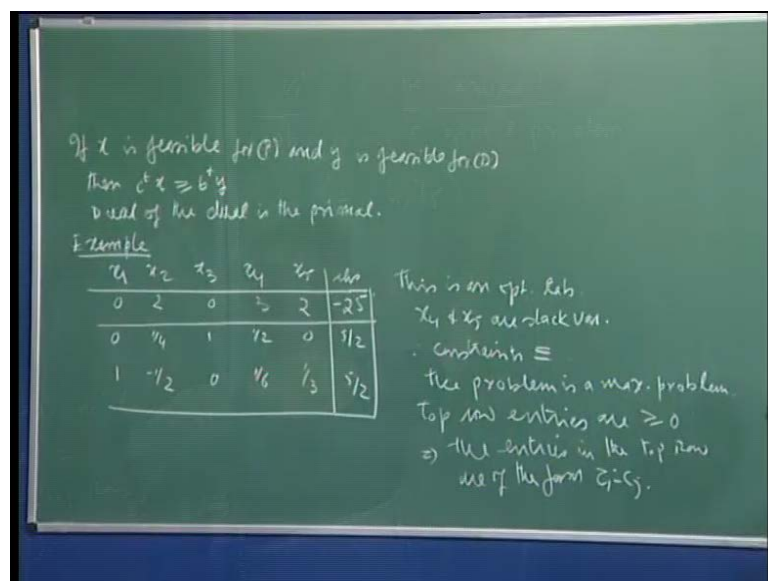 If x is feasible for (P) and y is feasible for (D)
Then cᵗx ≥ bᵗy
Dual of the dual is the primal.
Example
x₁ x₂ x₃ x₄ x₅ rhs
0 2 0 3 2 -25
0 1/4 1 1/2 0 5/2
1 -1/2 0 1/6 1/3 5/2
This is an opt. tab.
x₄ & x₅ are slack var.
∴ constraints ≤
the problem is a max. problem.
Top row entries are ≥ 0
⇒ the entries in the top row
are of the form zⱼ-cⱼ.